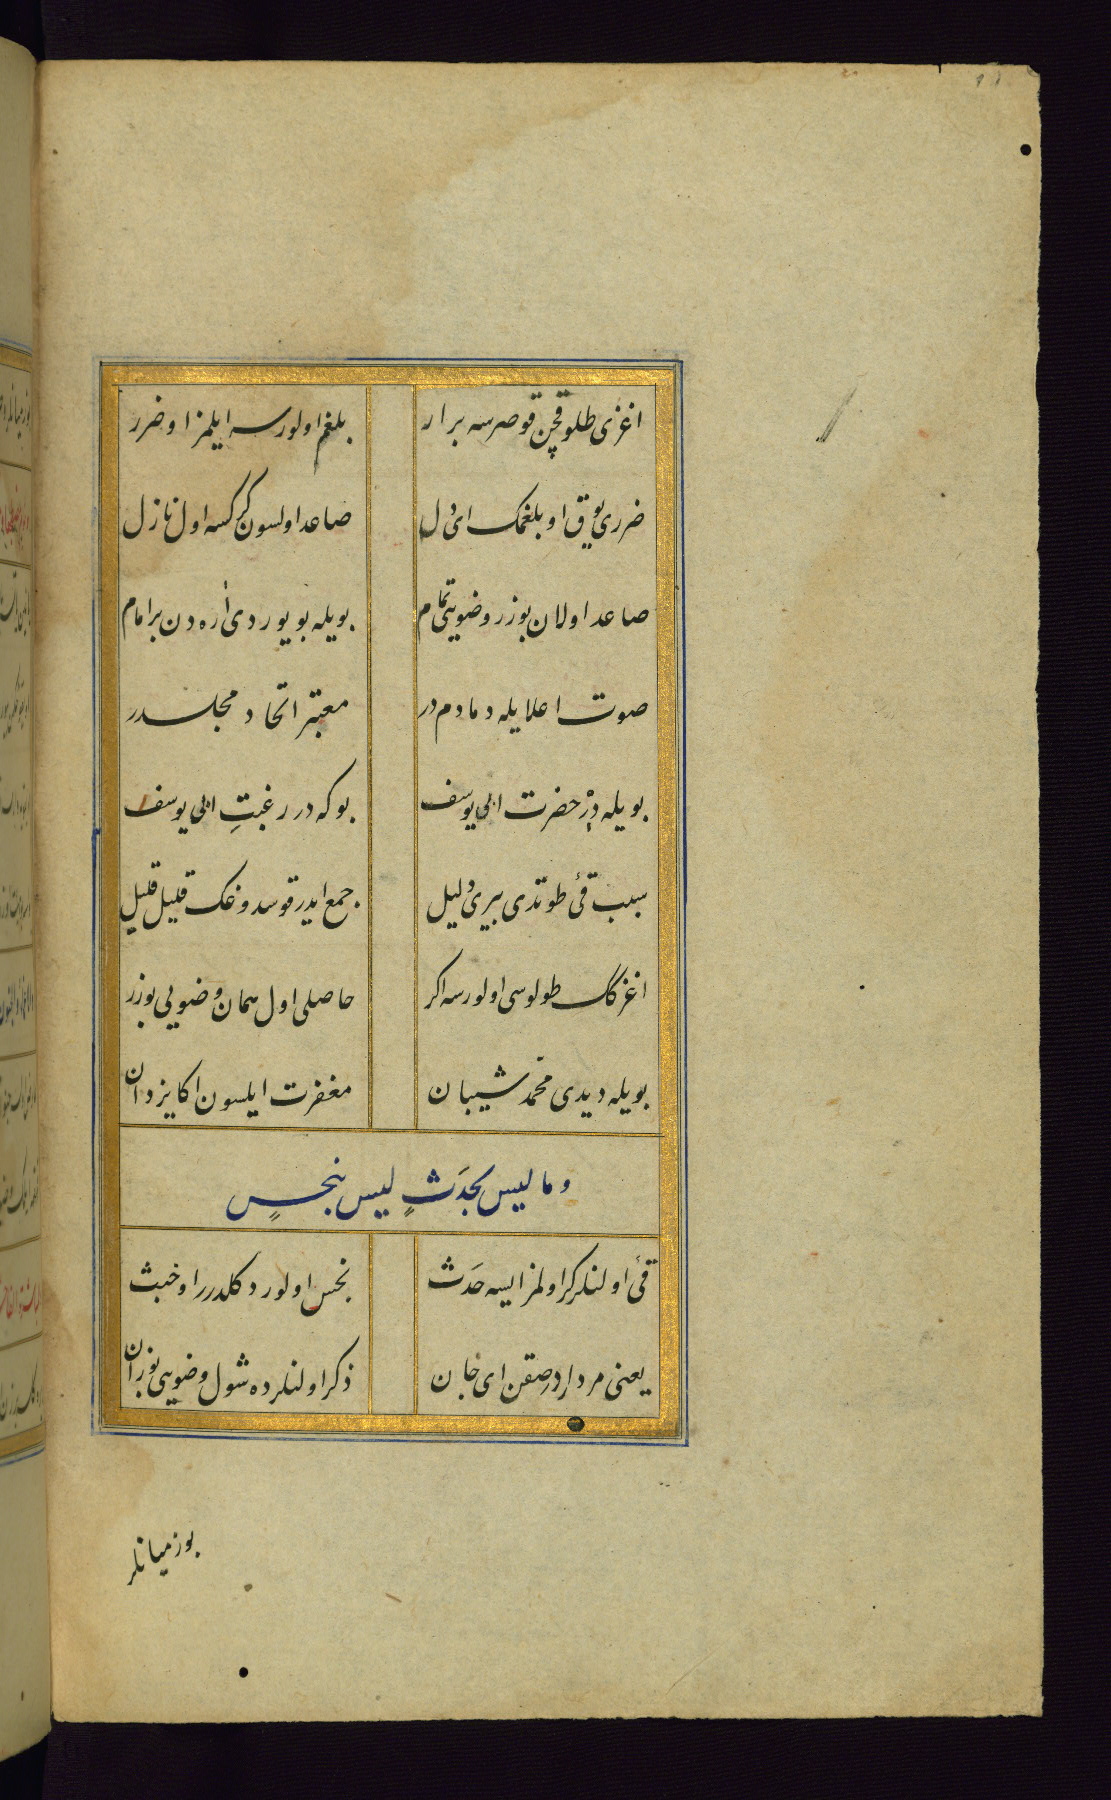 اغزی طلو قچن قوصرسه بر ار بلغم اولورسه ایلمز او ضرر
ضرری یوق او بلغمك ای دل صاعد اولسون كركسه اول نازل
صاعد اولان بوزر وضویی تمام بویله بویوردی اره دن بر امام
صوت اعلایله دمادم در معتبر اتحاد مجلسدر
بویله در حضرت ابی یوسف بو كه در رغبت ابی یوسف
سبب قئ طوتدی بیری دلیل جمع ایدر قوسدوغك قلیل قلیل
اغزك طولوسی اولورسه اكر حاصلی اول همان وضویی بوزر
بویله دیدی محمد شیبان مغفرت ایلسون اكا یزدان
وما لیس بحدَثٍ لیس بنجسٍ
قئ اولنلر كر اولمز ایسه حدَث نجس اولور دكلدر او خبث
یعنی مردار در صقن ای جان ذكر اولنلرده شول وضویی بوزان
بوزمیانلر